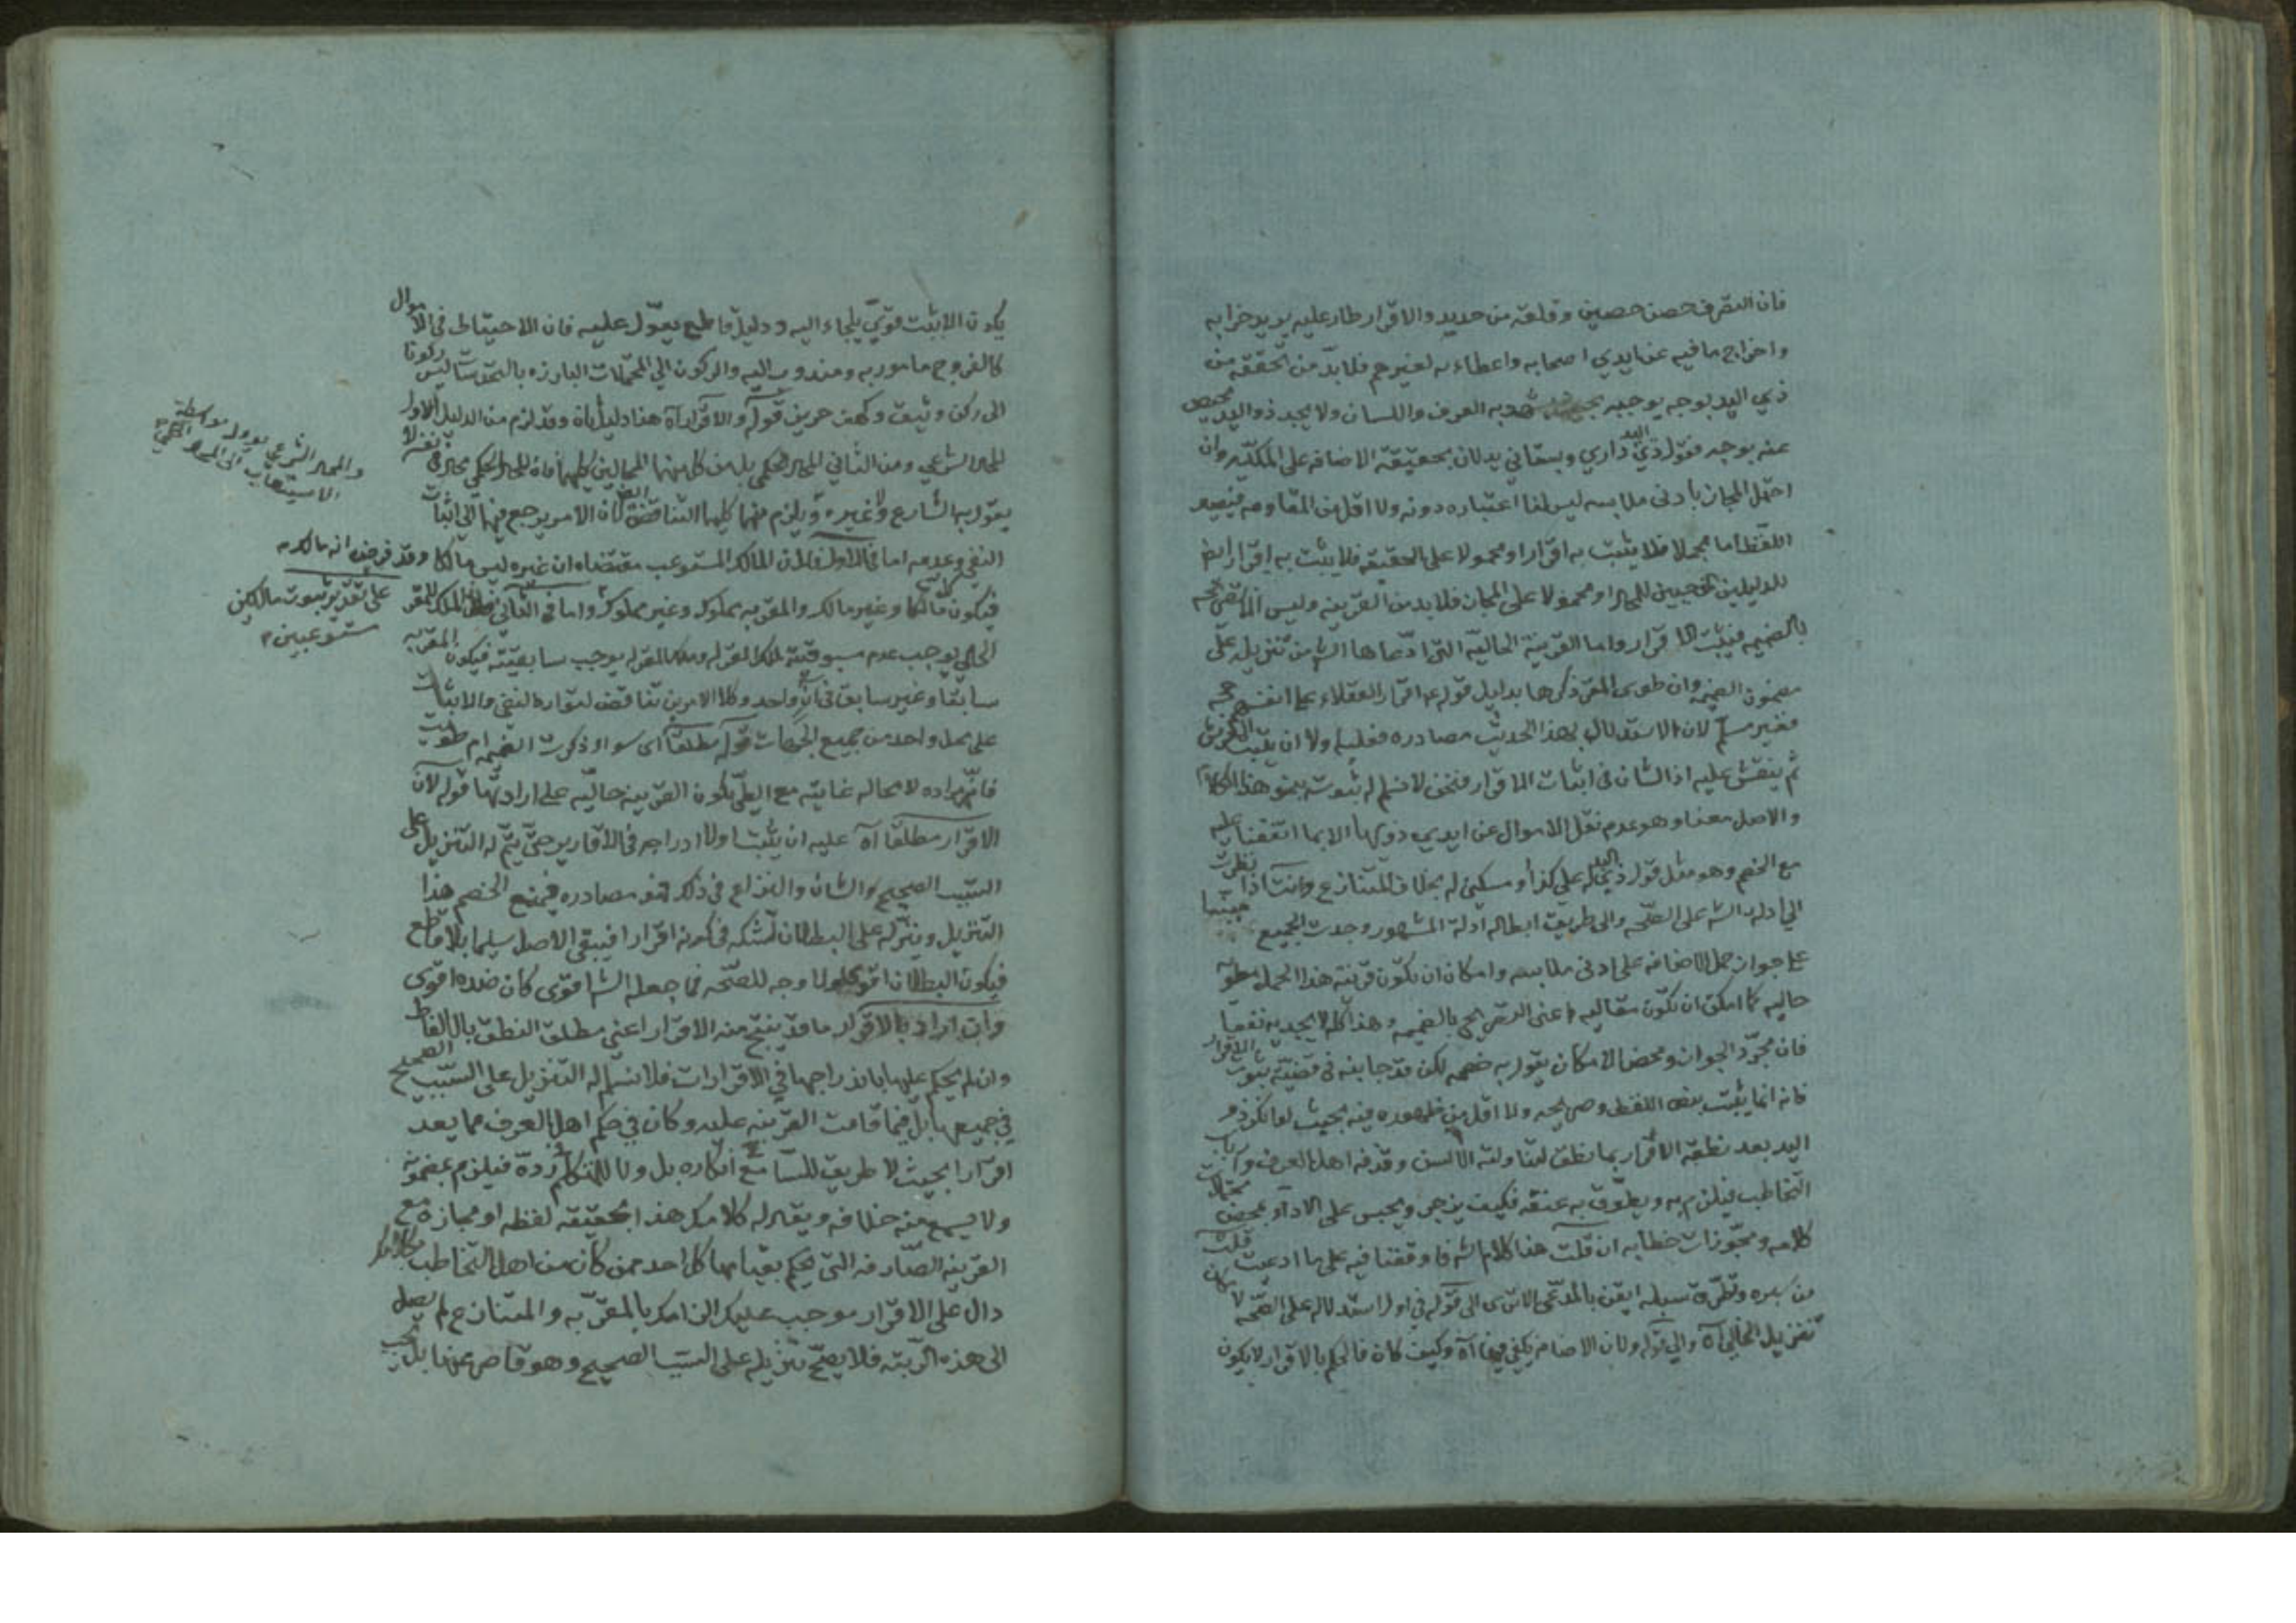 فان التصرف حصن حصين وقلعة من حديد والاقرار طار عليه يريد خرابه
واخراج ما فيه عن ايدي اصحابه واعطاءه لغيرهم فلا بد من تحققه من
ذي اليد بوجه يوجبه به العرف واللسان ولا يجد ذو اليد محيص
عنه بوجه فقول ذي اليد داري وبستاني يدلان بحقيقة الاضافه على الملكيه وان
احتمل المجاز بادنى ملابسه ليس لنا اعتباره دونه ولا اقل من المقاومه فيصير
اللفظ اما مجملا فلا يثبت به اقرار او محمولا على الحقيقه فلا يثبت به اقرار ايض
للدليلين او محمولا على المجاز فلا بد من القرينه وليس
بالضميمه فيثبت الاقرار واما القرينة الحاليه التي ادعاها الش من تنزيله على
مضمون الضميمه وان طوى المقر ذكرها بدليل قوله ع اقرار العقلاء على انفسهم
فغير مسلم لان الاستدلال بهذا الحديث مصادره فعليه اولا ان يثبت
ثم ينقش عليه اذ الشان في اثبات الاقرار فنحن لا نسلم له ثبوته بنحو هذا الكلام
والاصل معنا وهو عدم نقل الاموال عن ايدي ذويها الا بما اتفقنا عليه
مع الخصم وهو مثل قول ذي اليد له علي كذا او مسكني له بخلاف المتنازع وانت اذا نظرت
الى ادلة الش على الصحه والى طريق ابطاله ادلة المشهور وجدت الجميع
على جواز حمل الاضافه على ادنى ملابسه وامكان ان تكون قرينة هذا الحمل
حاليه كما امكن ان تكون مقاليه اعني بالضميمه وهذا كله لا يجديه نفعا
فان مجرد الجواز ومحض الامكان يقول به خصمه لكن في قضية ثبوت الاقرار
فانه انما يثبت بنص اللفظ وصريحه ولا اقل من ظهوره فيه بحيث لو انكر ذو
اليد بعد نطقه الاقرار بما نطق لتناولته الالسن وقذفه اهل العرف وارباب
التخاطب فيلزم به ويطوق به عنقه فكيف يزجر ويحبس على الاداء بمحض محتملات
كلامه ومجوزات خطابه ان قلت هذا كلام الش فاوقفنا فيه على ما ادعيت قلت
من سبره ونظره ايقن بالمدعى الا ترى الى قوله في اول استدلاله على الصحه لامكان
تنزيل آه والى قوله ولان الاضافه يكفي فيها آه وكيف كان فالحكم بالاقرار لا يكون
يكون الا بثبت قوي يلجاء اليه ودليل قاطع يعول عليه فان الاحتياط في الاموال
كالفروج مامور به ومندوب اليه والركون الى المحتملات البارزه ليس ركونا
الى ركن وثيق وكهف حريز قوله والاقرار آه هنا دليلان وقد لزم من الدليل الاول
المحال الشرعي ومن الثاني المحال الحكمي بل من كل منهما المحالين كليهما فان المحال الحكمي محال في نفسه لا
يقول به الشارع ولا غيره ويلزم منهما كليهما التناقض ايض لان الامر يرجع فيهما الى اثبات
النفي وعدمه اما في الاول فلان المالك المستوعب مقتضاه ان غيره ليس مالكا وقد فرض انه مالك
فيكون مالكا وغير مالك والمقر به مملوك وغير مملوك واما في الثاني فلان الملك للمقر
الحالي يوجب عدم مسبوقية ملك المقر له وملك المقر له يوجب سابقيته فيكون المقر به
سابقا وغير سابق في آن واحد وكلا الامرين تناقض لتوارد النفي والاثبات
على محل واحد من جميع الجهات قوله مطلقا اي سواء ذكرت الضميمه ام طويت
فانها مراده لا محاله غايته مع الطي تكون القرينه حاليه على ارادتها قوله لان
الاقرار مطلقا آه عليه ان يثبت اولا ادراجه في الاقارير حتى يتم له التنزيل على
السبب الصحيح والشان والنزاع في ذلك فهو مصادره فيمنع الخصم هذا
التنزيل وينزله على البطلان لشكه في كونه اقرارا فيبقى الاصل سليما بلا قاطع
فيكون البطلان اقوى ولا وجه للصحه فما جعله الش اقوى كان ضده اقوى
وان اراد بالاقرار ما قد ينتج منه الاقرار اعني مطلق النطق بالالفاظ
وان لم يحكم عليها باندراجها في الاقرارات فلا نسلم له التنزيل على السبب الصحيح
في جميعها بل فيما قامت القرينه عليه وكان في حكم اهل العرف مما يعد
اقرارا بحيث لا طريق للسامع انكاره بل ولا للمتكلم رده فيلزم بمضمونه
ولا يسمع منه خلافه ويقال له كلامك هذا بحقيقة لفظه او مجازه مع
القرينه الصارفه التي يحكم بقيامها كل احد ممن كان من اهل التخاطب بكلامك
دال على الاقرار موجب عليك الزامك بالمقر به والمتنازع لم يصل
الى هذه الرتبه فلا يصح تنزيله على السبب الصحيح وهو قاصر عنها بل يجب
والمحال الشرعي يؤول بواسطة
الاستيعاب الى الحكمي
على تقدير ثبوت مالكين
مستوعبين